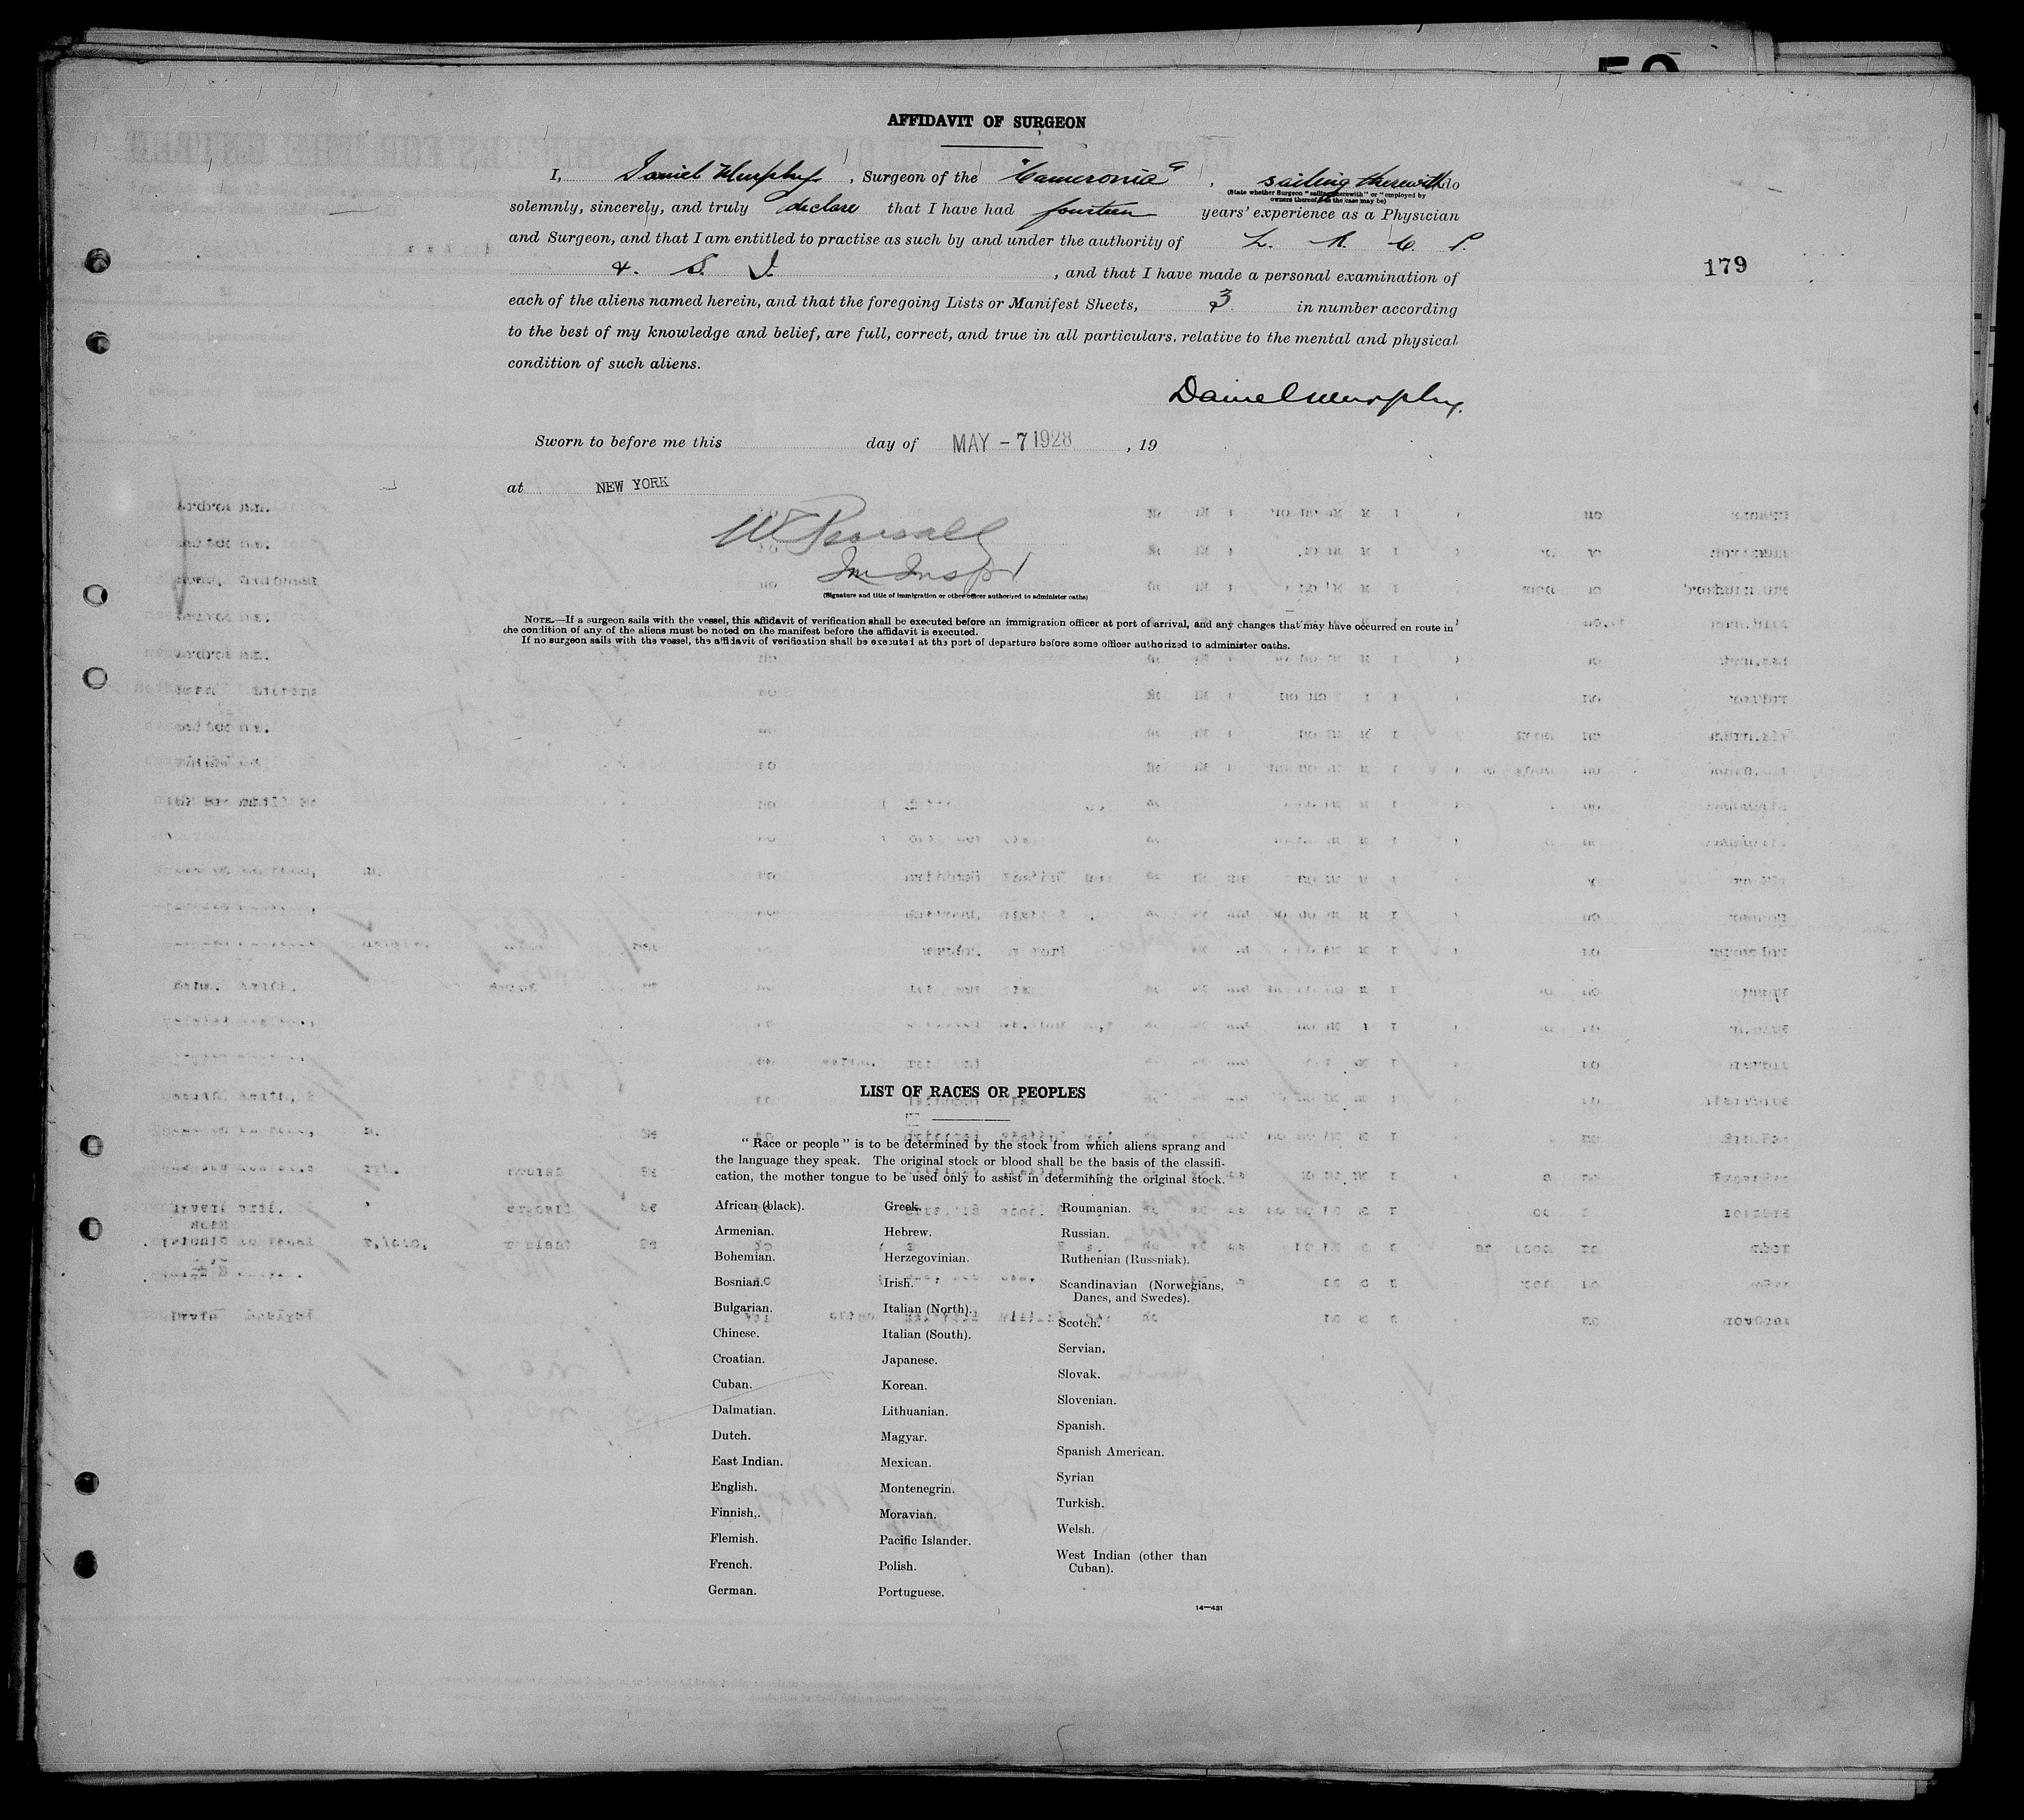 AFFIDAVIT OF SURGEON
I, Daniel Murphy, Surgeon of the "Cameronia", sailing therewith do
(State whether Surgeon "sailing therewith" or "employed by owners thereof," as the case may be)
solemnly, sincerely, and truly declare that I have had fourteen years' experience as a Physician
and Surgeon, and that I am entitled to practise as such by and under the authority of L. R. C. P.
&. S. I. , and that I have made a personal examination of
179
each of the aliens named herein, and that the foregoing Lists or Manifest Sheets, 3 in number according
to the best of my knowledge and belief, are full, correct, and true in all particulars, relative to the mental and physical
condition of such aliens.
Daniel Murphy.
Sworn to before me this day of MAY - 7 1928 , 19
at NEW YORK
W Pearsall
Im Inspt
(Signature and title of immigration or other officer authorized to administer oaths)
NOTE.—If a surgeon sails with the vessel, this affidavit of verification shall be executed before an immigration officer at port of arrival, and any changes that may have occurred en route in
the condition of any of the aliens must be noted on the manifest before the affidavit is executed.
If no surgeon sails with the vessel, the affidavit of verification shall be executed at the port of departure before some officer authorized to administer oaths.
LIST OF RACES OR PEOPLES
"Race or people" is to be determined by the stock from which aliens sprang and
the language they speak. The original stock or blood shall be the basis of the classifi-
cation, the mother tongue to be used only to assist in determining the original stock.
African (black).
Armenian.
Bohemian.
Bosnian.
Bulgarian.
Chinese.
Croatian.
Cuban.
Dalmatian.
Dutch.
East Indian.
English.
Finnish.
Flemish.
French.
German.
Greek.
Hebrew.
Herzegovinian.
Irish.
Italian (North).
Italian (South).
Japanese.
Korean.
Lithuanian.
Magyar.
Mexican.
Montenegrin.
Moravian.
Pacific Islander.
Polish.
Portuguese.
Roumanian.
Russian.
Ruthenian (Russniak).
Scandinavian (Norwegians,
Danes, and Swedes).
Scotch.
Servian.
Slovak.
Slovenian.
Spanish.
Spanish American.
Syrian
Turkish.
Welsh.
West Indian (other than
Cuban).
14—431